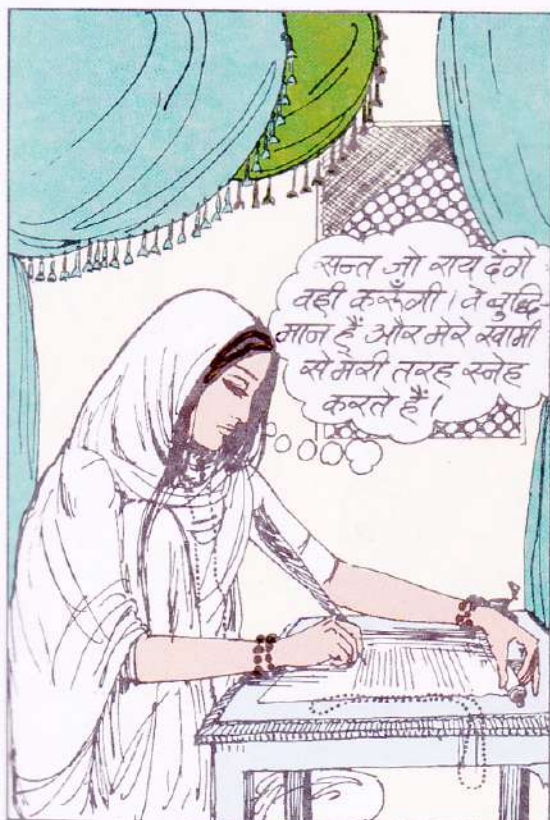 सन्त जो राय देंगे
वही करूँगी। वे बुद्धि
मान हैं और मेरे स्वामी
से मेरी तरह स्नेह
करते हैं।